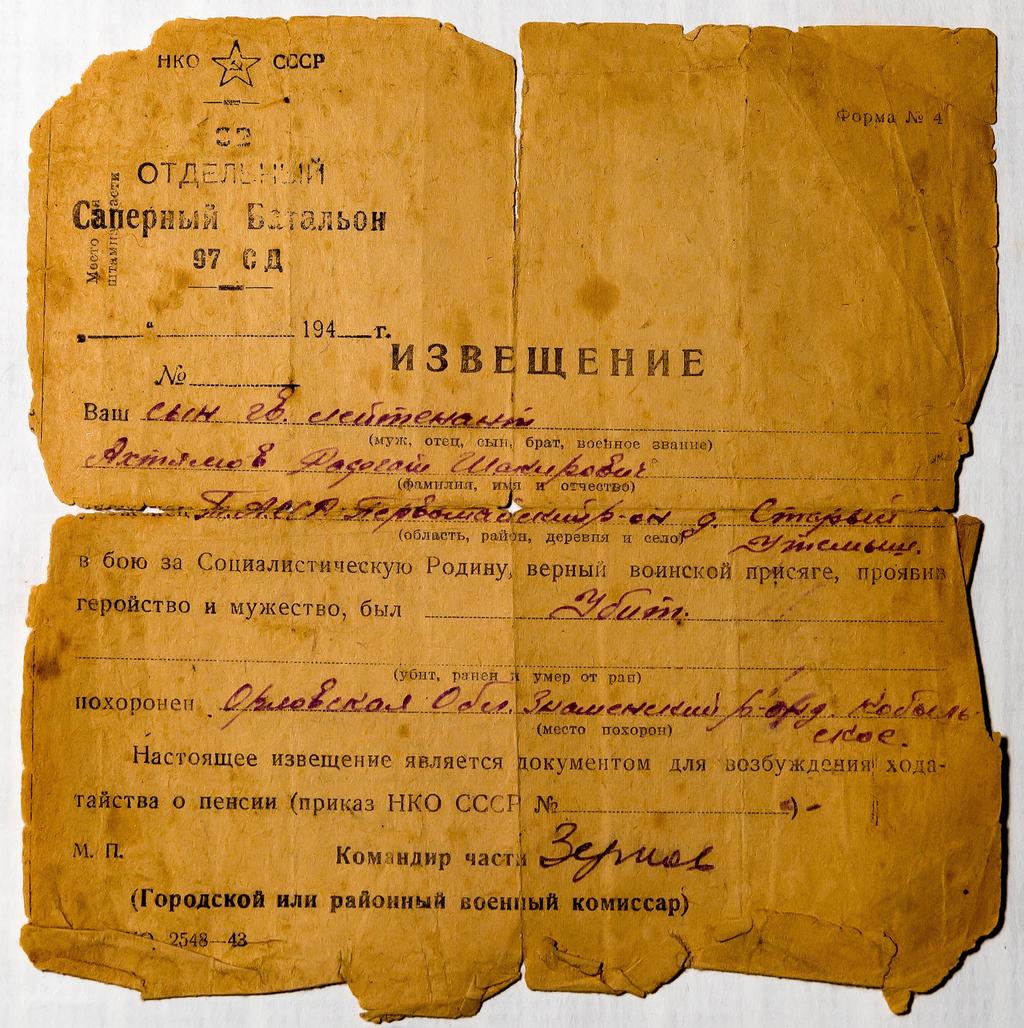 НКО СССР
32
ОТДЕЛЬНЫЙ
Саперный Батальон
97 СД
Место
штампа части
Форма № 4
„ “ 194 г.
№
ИЗВЕЩЕНИЕ
Ваш сын гв. лейтенант
(муж, отец, сын, брат, военное звание)
Ахтямов Шакирович
(фамилия, имя и отчество)
ТАССР Первомайский р-он д. Старый
(область, район, деревня и село)
в бою за Социалистическую Родину, верный воинской присяге, проявив
геройство и мужество, был Убит.
(убит, ранен и умер от ран)
похоронен Орловская Обл. Знаменский р-он д. Кобыль-
ское.
(место похорон)
Настоящее извещение является документом для возбуждения хода-
тайства о пенсии (приказ НКО СССР № )
М. П.
Командир части
(Городской или районный военный комиссар)
2548—43